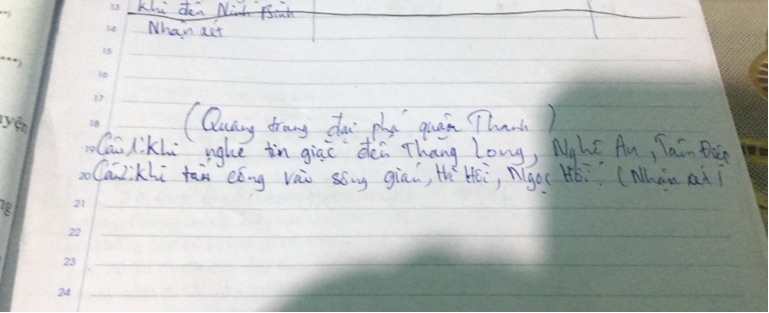 13 Khi đến Ninh Bình
14 Nhận xét
15
16
17
18 (Quang trung đại phá quân Thanh)
19 Câu 1: Khi nghe tin giặc đến Thăng Long, Nghệ An, Tam Điệp
20 Câu 2: Khi tấn công vào sông gián, Hà Hồi, Ngọc Hồi. (Nhận xét)
21
22
23
24
uyện